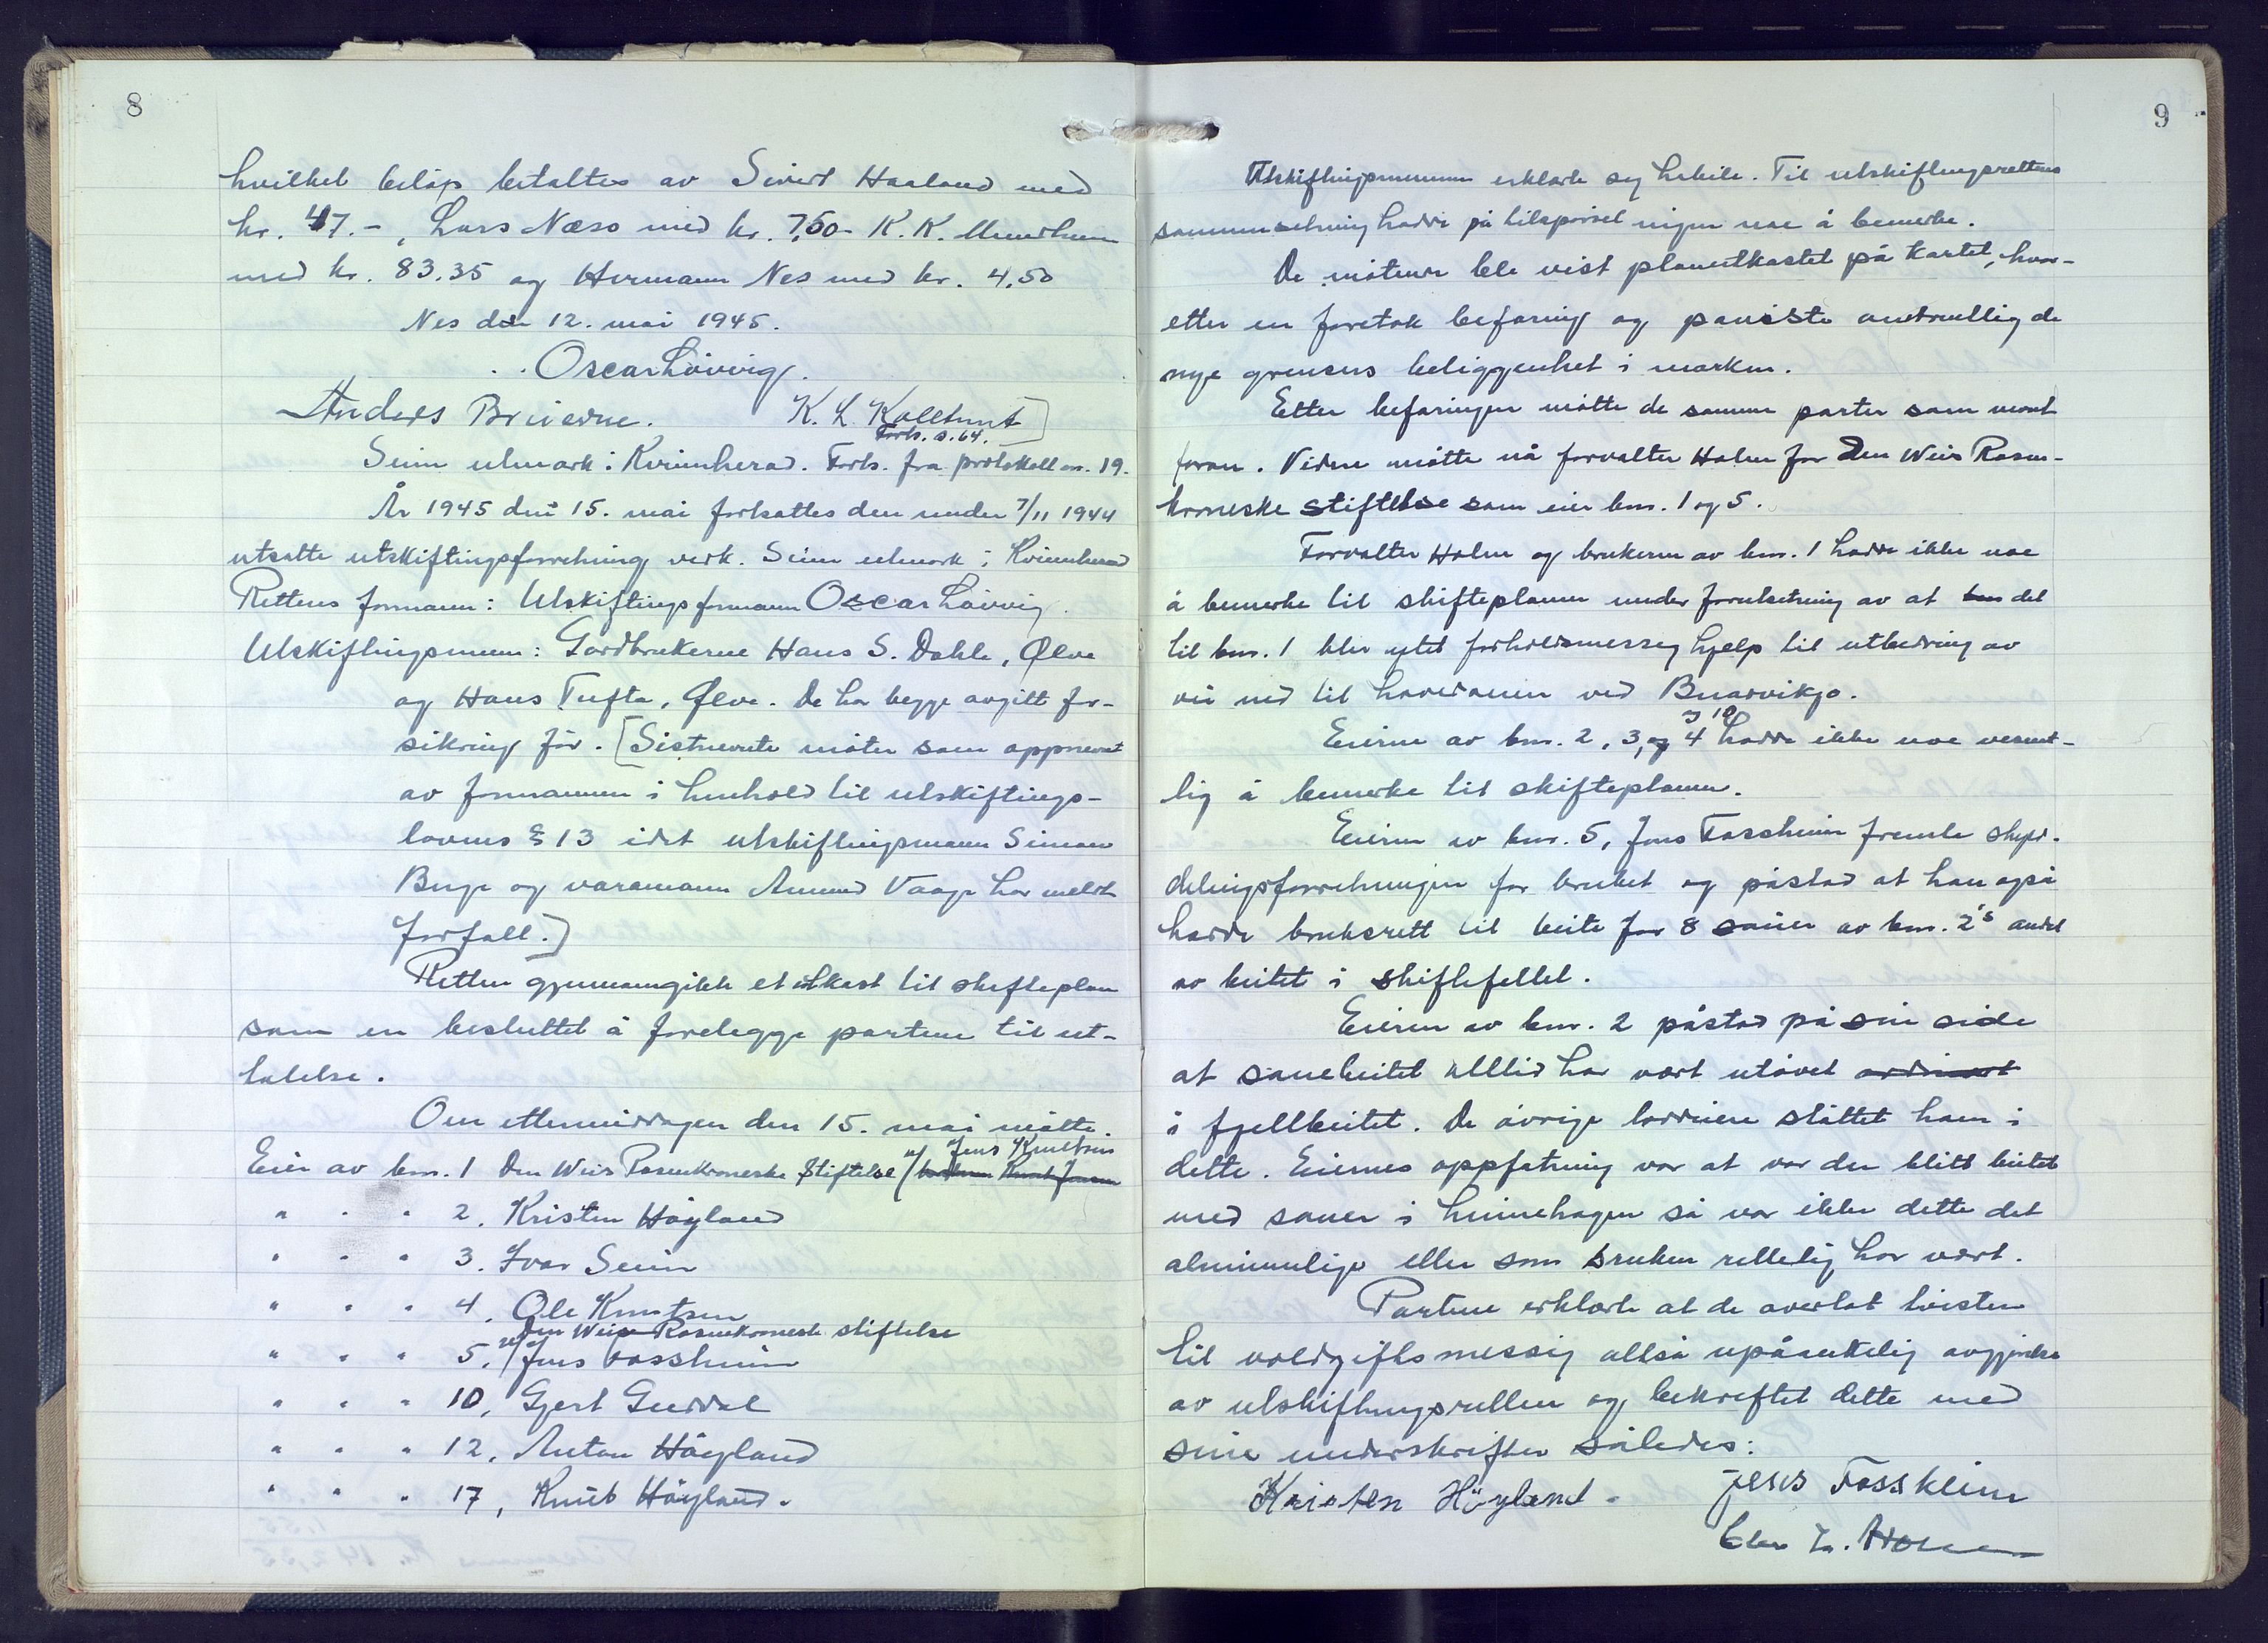 8
hvilket beløp betaltes av Sivert Haaland med
kr. 47.-, Lars Næss med kr. 7,50- K. K. Mundheim
med kr. 83.35 og Hermann Nes med kr. 4.50
Nes den 12. mai 1945.
Oscar Løvvig.
Anders Bruevne. K. L. Kalltunt
Forts. s. 64.
Seim utmark i Kvinnherad. Forts. fra protokoll nr. 19.
År 1945 den 15. mai fortsattes den under 7/11 1944
utsatte utskiftingsforretning vedk. Seim utmark i Kvinnherad
Rettens formann: Utskiftingsformann Oscar Løvvig.
Utskiftingsmenn: Gardbrukerne Hans S. Dahle, Ølve
og Hans Tufta, Ølve. De har begge avgitt for-
sikring før. [Sistnevnte møter som oppnevnt
av formannen i henhold til utskiftings-
lovens § 13 idet utskiftingsmann Simon
Buge og varamann Amund Vaage har meldt
forfall.]
Retten gjennomgikk et utkast til skifteplan
som en besluttet å forelegge partene til ut-
talelse.
Om ettermiddagen den 15. mai møtte.
Eier av bnr. 1 Den Weis Rosenkroneske Stiftelse v/ Jens Knutsen
" " " 2. Kristen Høyland
" " " 3. Ivar Seim
" " " 4. Ole Knutsen
Den Weis Rosenkroneske stiftelse
" " " 5. v/ Jens Fossheim
" " " 10, Gjert Guddal
" " " 12, Anton Høyland
" " " 17, Knut Høyland.
9
Utskiftingsmennene erklærte seg habile. Til utskiftingsrettens
sammensetning hadde på tilspørsel ingen noe å bemerke.
De møtende ble vist planutkastet på kartet, hvor-
etter en foretok befaring og påviste omtrentlig de
nye grensers beliggenhet i marken.
Etter befaringen møtte de samme parter som nevnt
foran. Videre møtte nå forvalter Holm for Den Weis Rosen-
kroneske stiftelse som eier bnr. 1 og 5.
Forvalter Holm og brukeren av bnr. 1 hadde ikke noe
å bemerke til skifteplanen under forutsetning av at det
til bnr. 1 blir ytet forholdsmessig hjelp til utbedring av
vei ned til hovedveien ved Buarvikjo.
Eierne av bnr. 2, 3, og 4 og 10 hadde ikke noe vesent-
lig å bemerke til skifteplanen.
Eieren av bnr. 5, Jens Fossheim fremla skyld-
delingsforretningen for bruket og påstod at han også
hadde bruksrett til beite for 8 sauer av bnr. 2's andel
av beitet i skiftefeltet.
Eieren av bnr. 2 påstod på sin side
at sauebeitet alltid har vært utøvet ordinært
i fjellbeitet. De øvrige loddeiere støttet ham i
dette. Eiernes oppfatning var at var der blitt beitet
med sauer i heimehagen så var ikke dette det
alminnelige eller som bruken rettelig har vært.
Partene erklærte at de overlot tvisten
til voldgiftsmessig altså upåankelig avgjørelse
av utskiftingsretten og bekreftet dette med
sine underskrifter således:
Kristen Høyland. Jens Fossheim